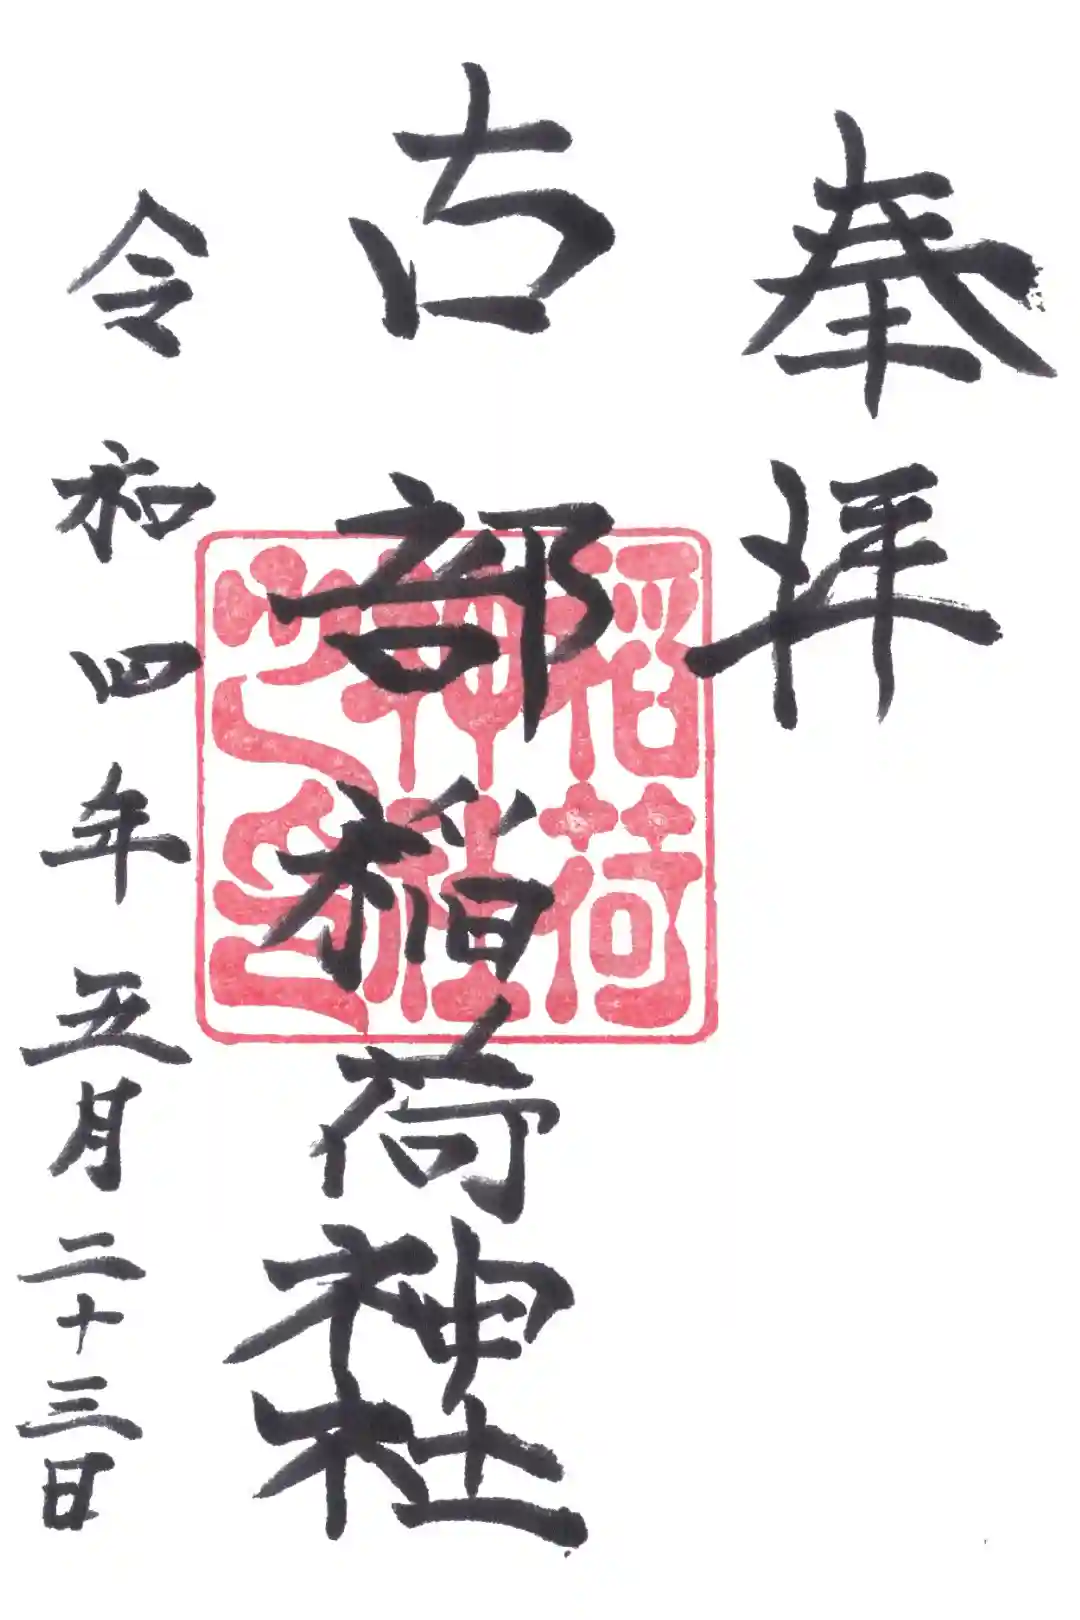 奉拝
古部稲荷神社
稲荷
神社
之印
令和四年五月二十三日